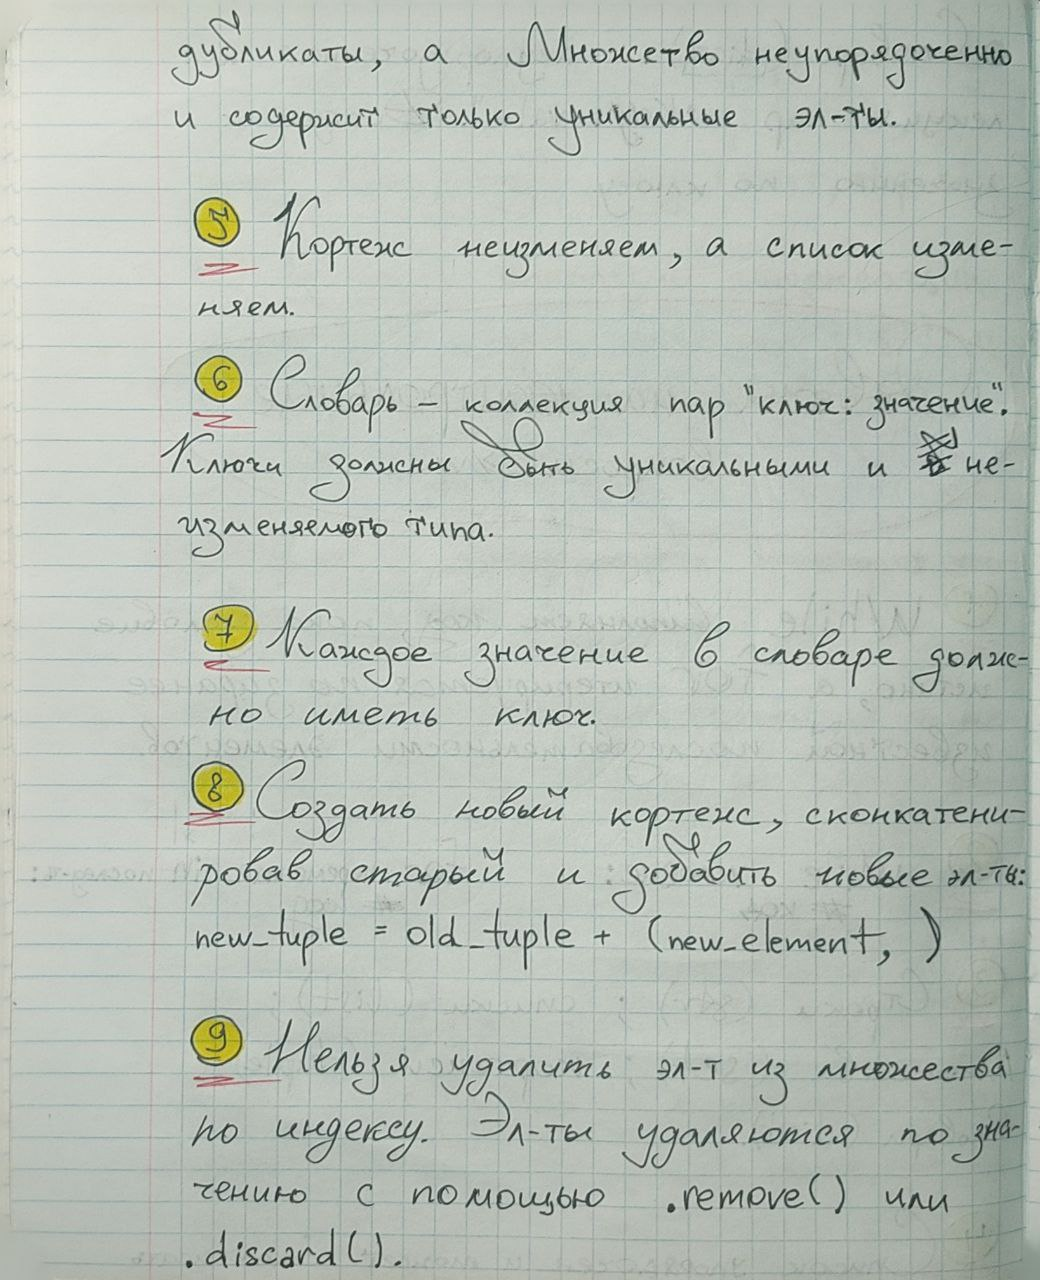 дубликаты, а Множество неупорядоченно
и содержит только уникальные эл-ты.
5 Кортеж неизменяем, а список изме-
няем.
6 Словарь – коллекция пар "ключ: значение".
Ключи должны быть уникальными и не-
изменяемого типа.
7 Каждое значение в словаре долж-
но иметь ключ.
8 Создать новый кортеж, сконкатени-
ровав старый и добавить новые эл-ты:
new_tuple = old_tuple + (new_element, )
9 Нельзя удалить эл-т из множества
по индексу. Эл-ты удаляются по зна-
чению с помощью .remove() или
.discard().